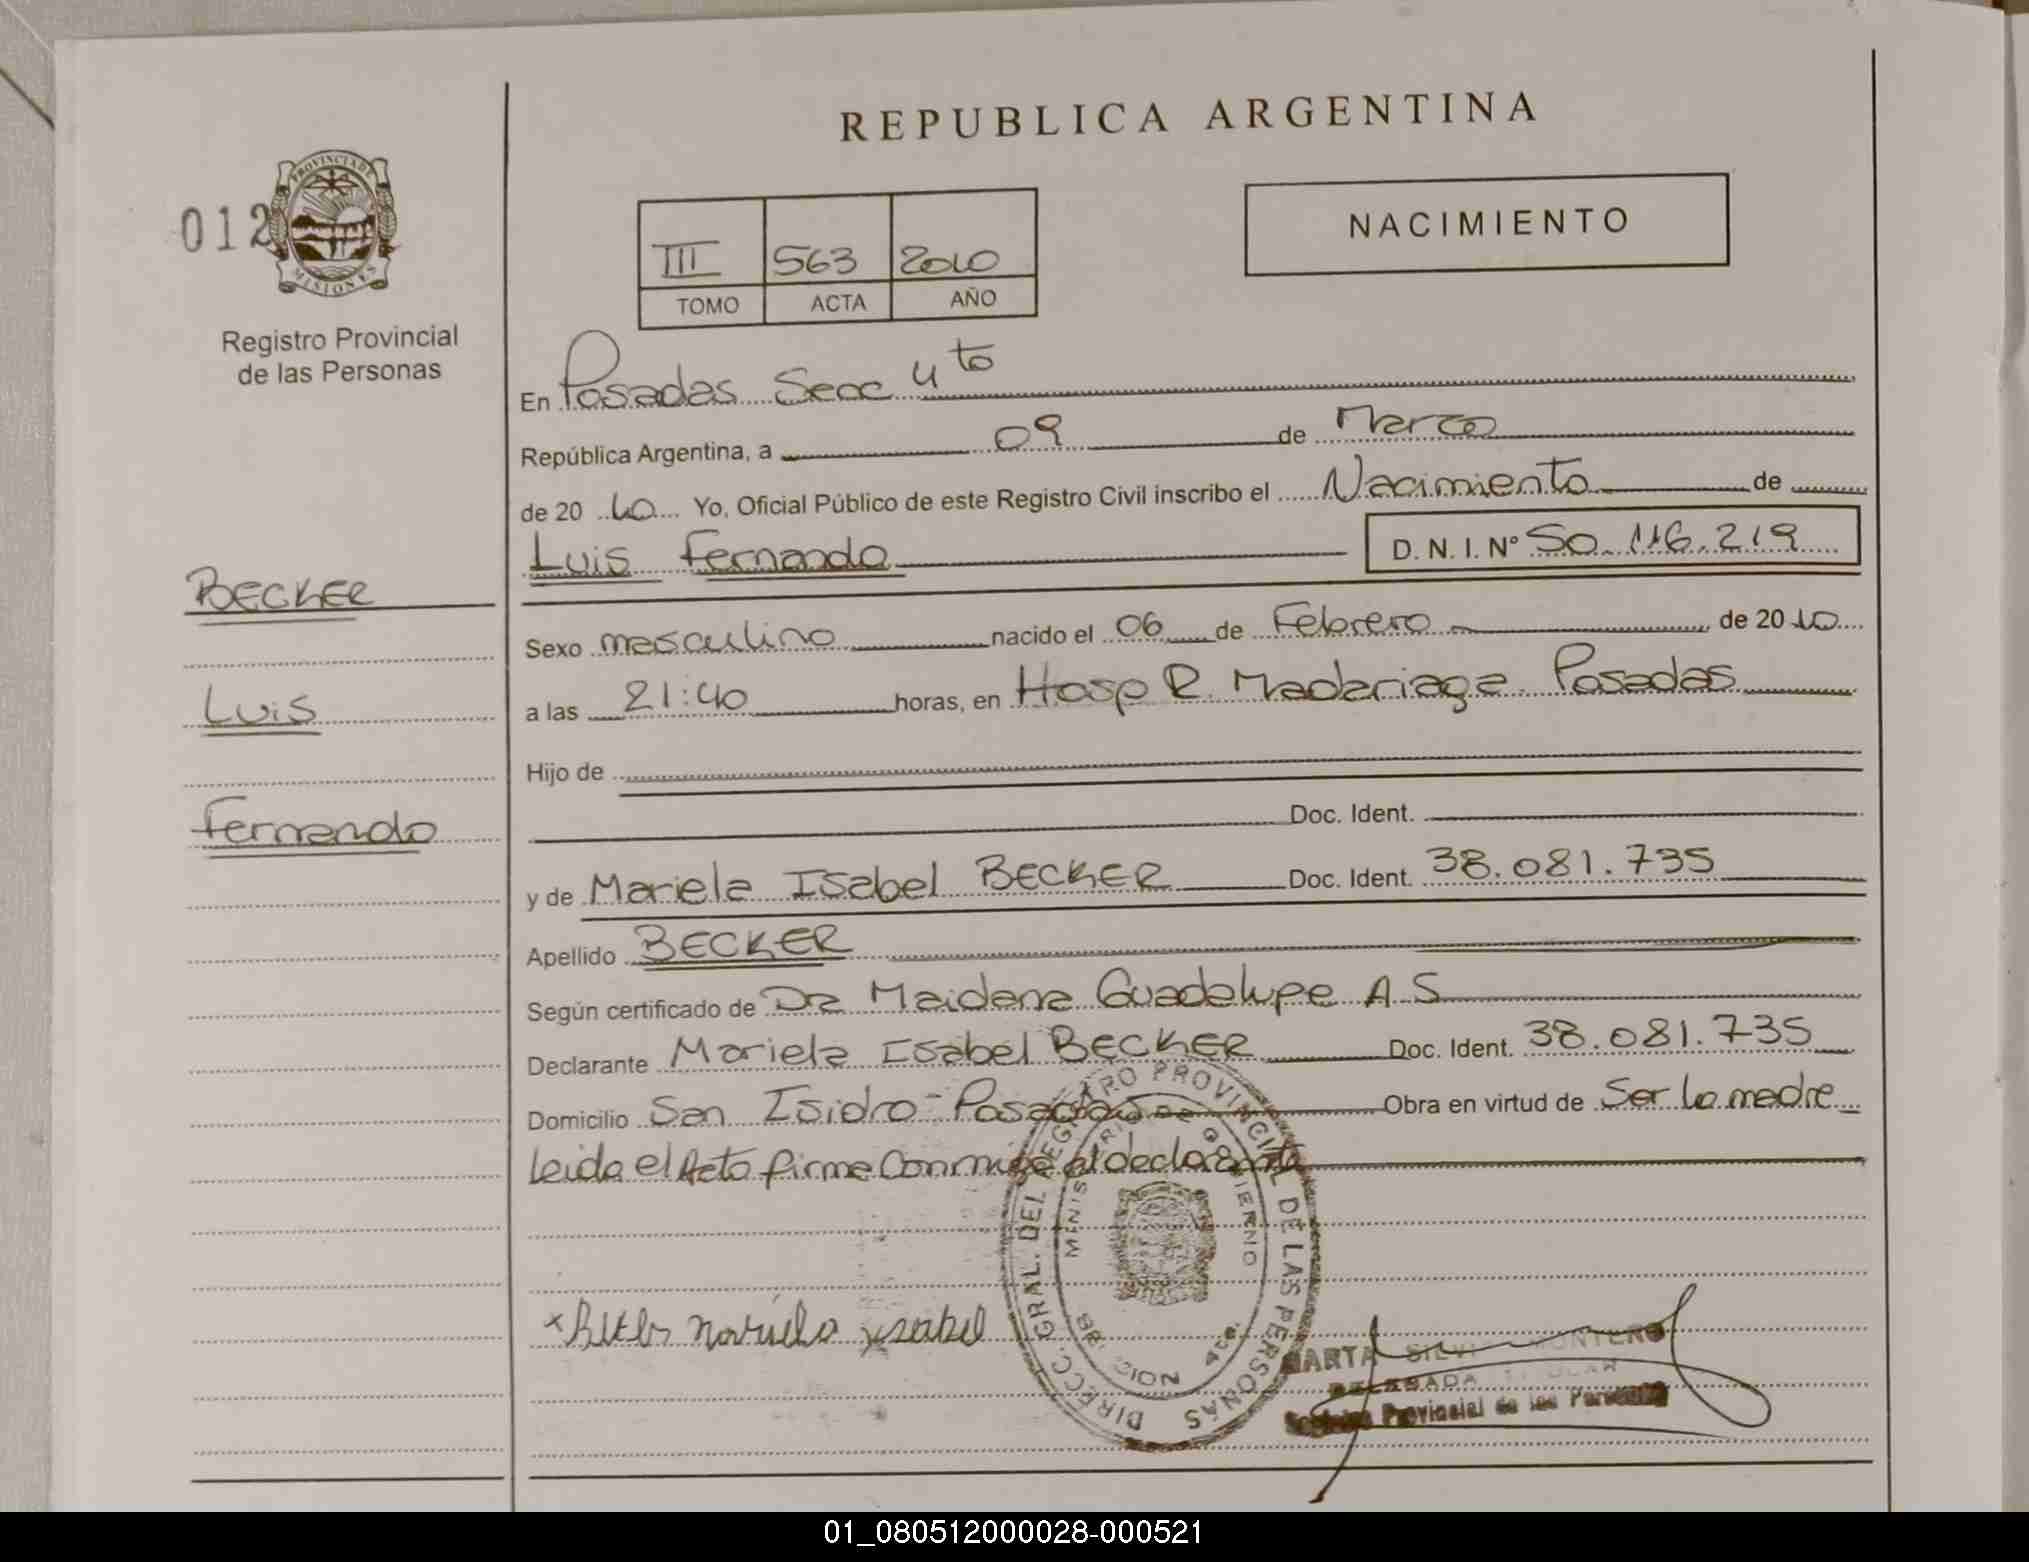 REPUBLICA ARGENTINA
PROVINCIA DE
MISIONES
012
Registro Provincial
de las Personas
NACIMIENTO
III 563 2010
TOMO ACTA AÑO
En Posadas Secc 4to
República Argentina, a 09 de Marzo
de 2010 Yo, Oficial Público de este Registro Civil inscribo el Nacimiento de
Luis Fernando D. N. I. Nº 50.116.219
BECKER
Luis
Fernando
Sexo masculino nacido el 06 de Febrero de 2010
a las 21:40 horas, en Hosp R. Madariaga Posadas
Hijo de
Doc. Ident.
y de Mariela Isabel BECKER Doc. Ident. 38.081.735
Apellido BECKER
Según certificado de Dra Maidana Guadalupe A S
Declarante Mariela Isabel BECKER Doc. Ident. 38.081.735
Domicilio San Isidro - Posadas Obra en virtud de Ser la madre
Leida el Acta firma Conmigo el declarante
DIRECC. GRAL. DEL REGISTRO PROVINCIAL DE LAS PERSONAS
MINISTERIO DE GOBIERNO
MARTA SILVI MONTERO
DELEGADA TITULAR
Registro Provincial de las Personas
01_080512000028-000521